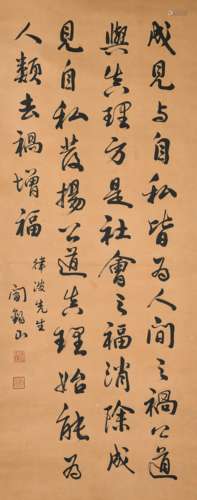 成見与自私皆为人间之禍公道
與真理方是社會之福消除成
見自私發揚公道真理始能为
人類去禍增福
律波先生
閻錫山